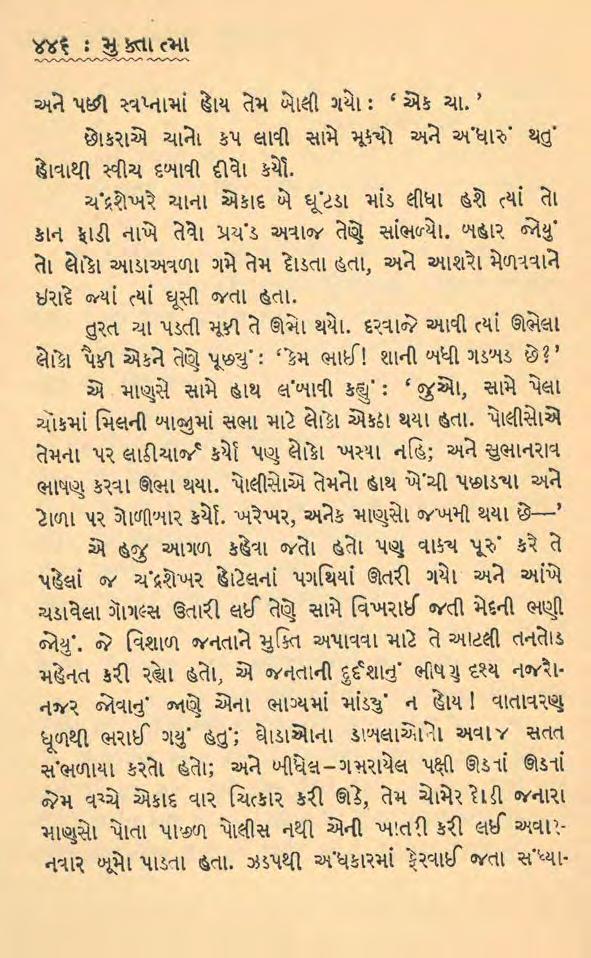 ૪૪૬ : મુક્તાત્મા
અને પછી સ્વપ્નામાં હોય તેમ બોલી ગયો : ‘ એક ચા. ’
છોકરાએ ચાનો કપ લાવી સામે મૂક્યો અને અંધારું થતું
હોવાથી સ્વીચ દબાવી દીવો કર્યો.
ચંદ્રશેખરે ચાના એકાદ બે ઘૂંટડા માંડ લીધા હશે ત્યાં તો
કાન ફાડી નાખે તેવો પ્રચંડ અવાજ તેણે સાંભળ્યો. બહાર જોયું
તો લોકો આડાઅવળા ગમે તેમ દોડતા હતા, અને આશરો મેળવવાને
ઇરાદે જ્યાં ત્યાં ઘૂસી જતા હતા.
તુરત ચા પડતી મૂકી તે ઊભો થયો. દરવાજે આવી ત્યાં ઊભેલા
લોકો પૈકી એકને તેણે પૂછ્યું : ‘કેમ ભાઈ! શાની બધી ગડબડ છે?’
એ માણુસે સામે હાથ લંબાવી કહ્યું : ‘ જુઓ, સામે પેલા
ચોકમાં મિલની બાજુમાં સભા માટે લોકો એકઠા થયા હતા. પોલીસોએ
તેમના પર લાઠીચાર્જ કર્યો પણ લોકો ખસ્યા નહિ; અને સુભાનરાવ
ભાષણ કરવા ઊભા થયા. પોલીસોએ તેમનો હાથ ખેંચી પછાડ્યા અને
ટોળા પર ગોળીબાર કર્યો. ખરેખર, અનેક માણસો જખમી થયા છે—’
એ હજુ આગળ કહેવા જતો હતો પણ વાક્ય પૂરું કરે તે
પહેલાં જ ચંદ્રશેખર હોટેલનાં પગથિયાં ઊતરી ગયો અને આંખે
ચડાવેલા ગોગલ્સ ઉતારી લઈ તેણે સામે વિખરાઈ જતી મેદની ભણી
જોયું. જે વિશાળ જનતાને મુક્તિ અપાવવા માટે તે આટલી તનતોડ
મહેનત કરી રહ્યો હતો, એ જનતાની દુર્દશાનું ભીષણ દશ્ય નજરો-
નજર જોવાનું જાણે એના ભાગ્યમાં માંડ્યું ન હોય ! વાતાવરણ
ધૂળથી ભરાઈ ગયું હતું; ઘોડાઓના ડાબલાઓનો અવાજ સતત
સંભળાયા કરતો હતો; અને બીધેલ–ગભરાયેલ પક્ષી ઊડતાં ઊડતાં
જેમ વચ્ચે એકાદ વાર ચિત્કાર કરી ઊઠે, તેમ ચોમેર દોડી જનારા
માણસો પોતા પાછળ પોલીસ નથી એની ખાતરી કરી લઈ અવાર-
નવાર બૂમો પાડતા હતા. ઝડપથી અંધકારમાં ફેરવાઈ જતા સંધ્યા-